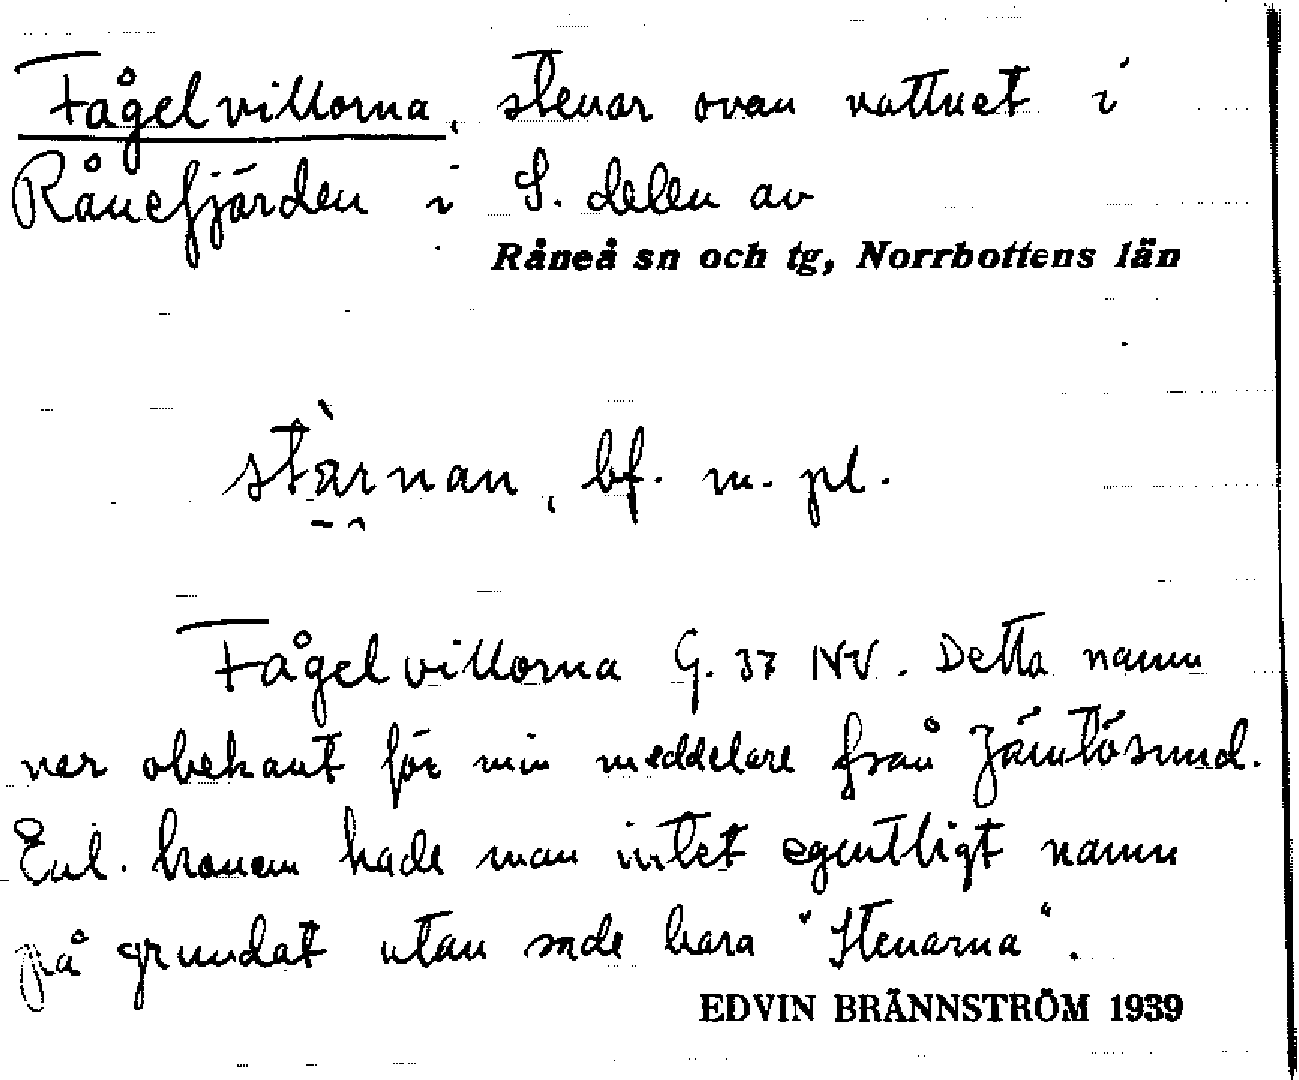 Fågelvillorna, stenar ovan vattnet i
Rånefjärden i S. delen av
Råneå sn och tg, Norrbottens län
stärnan, bf. m. pl.
Fågelvillorna G. 37 NV. Detta namn
var obekant för min meddelare från Jämtösund.
Enl. honom hade man intet egentligt namn
på grundat utan sade bara "Stenarna".
EDVIN BRÄNNSTRÖM 1939